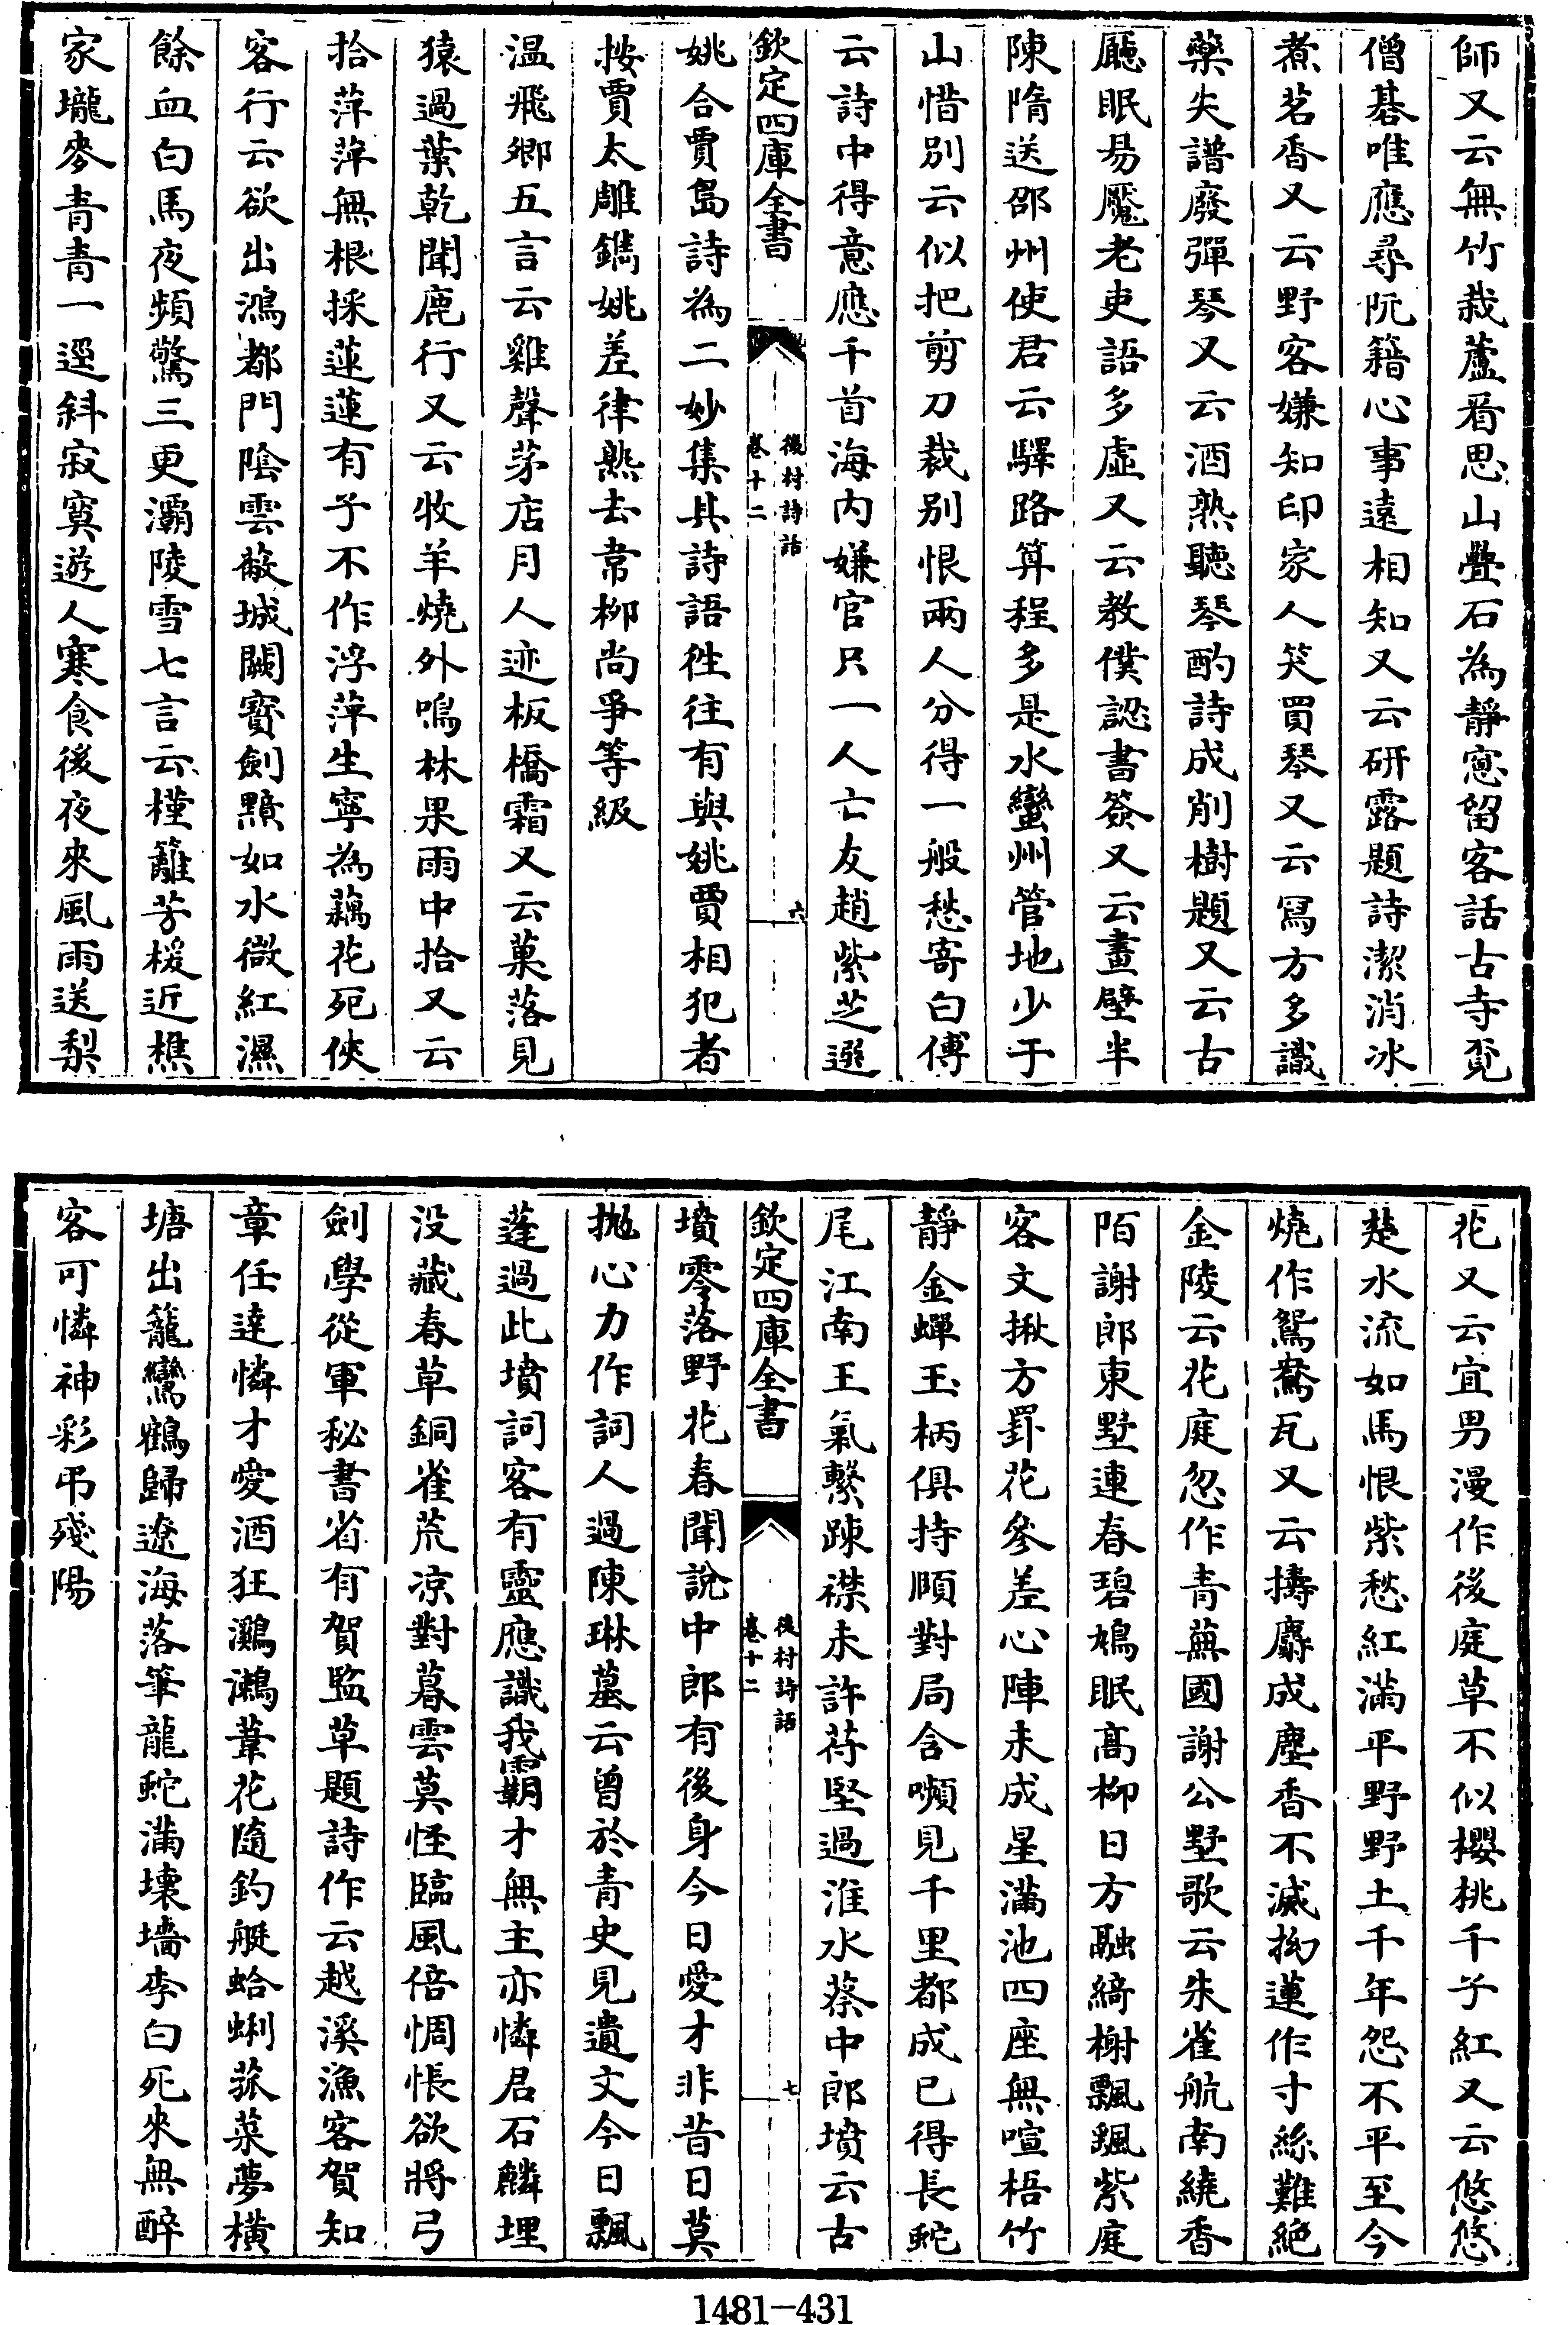 師又云無竹栽蘆看思山疊石為靜窓留客話古寺覓
僧碁唯應尋阮籍心事遠相知又云研露題詩潔消冰
煮茗香又云野客嫌知印家人笑買琴又云冩方多識
藥失譜廢彈琴又云酒熟聽琴酌詩成削樹題又云古
廳眠易魘老吏語多虛又云教僕認書籤又云畫壁半
陳隋送邵州使君云驛路算程多是水蠻州管地少于
山惜別云似把剪刀裁别恨兩人分得一般愁寄白傅
云詩中得意應千首海内嫌官只一人亡友趙紫芝選
欽定四庫全書
後村詩話
卷十二
六
姚合賈島詩為二妙集其詩語徃往有與姚賈相犯者
按賈太雕鐫姚差律熟去韋柳尚爭等級
温飛卿五言云雞聲茅店月人迹板橋霜又云菓落見
猿過葉乾聞鹿行又云牧羊燒外鳴林果雨中拾又云
拾萍萍無根採蓮蓮有子不作浮萍生寧為藕花死俠
客行云欲出鴻都門陰雲蔽城闕寳劍黯如水微紅濕
餘血白馬夜頻驚三更灞陵雪七言云槿籬芳援近樵
家壠麥青青一逕斜寂寞遊人寒食後夜來風雨送梨
花又云宜男漫作後庭草不似櫻桃千子紅又云悠悠
楚水流如馬恨紫愁紅滿平野野土千年怨不平至今
燒作鴛鴦瓦又云擣麝成塵香不滅拗蓮作寸絲難絶
金陵云花庭忽作青蕪國謝公墅歌云朱雀航南繞香
陌謝郎東墅連春碧鳩眠髙柳日方融綺榭飄颻紫庭
客文揪方罫花參差心陣未成星滿池四座無喧梧竹
靜金蟬玉柄俱持頤對局含嚬見千里都成已得長蛇
尾江南王氣繫踈襟未許苻堅過淮水蔡中郎墳云古
欽定四庫全書
後村詩話
卷十二
七
墳零落野花春聞說中郎有後身今日愛才非昔日莫
抛心力作詞人過陳琳墓云曽於青史見遺文今日飄
蓬過此墳詞客有靈應識我霸才無主亦憐君石麟埋
没藏春草銅雀荒凉對暮雲莫怪臨風倍惆悵欲將弓
劍學從軍秘書省有賀監草題詩作云越溪漁客賀知
章任達憐才愛酒狂鸂鷘葦花隨釣艇蛤蜊菰菜夢横
塘出籠鸞鶴歸遼海落筆龍蛇滿壊墻李白死來無醉
客可憐神彩弔殘陽
1481-431